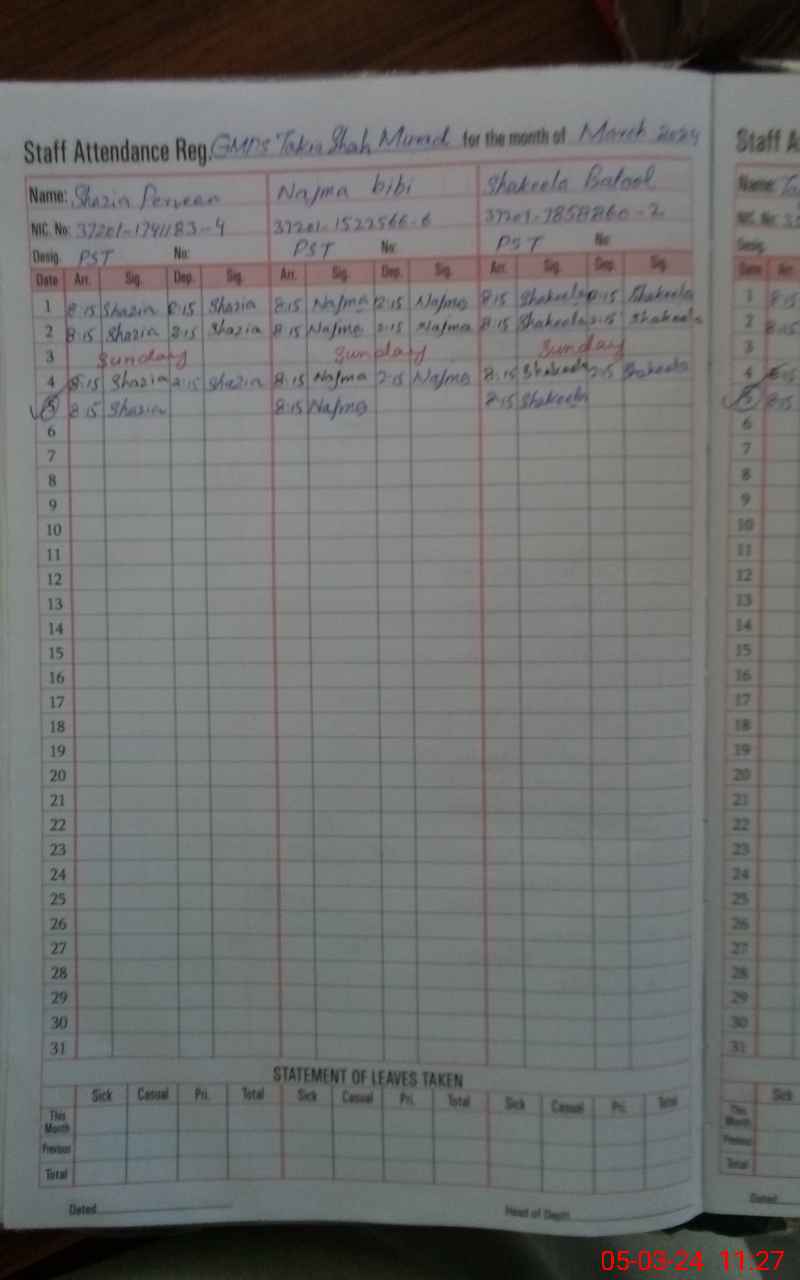 Staff Attendance Reg. GMPS Takia Shah Murad for the month of March 2024
Staff A
Name: Shazia Perveen Najma bibi Shakeela Batool
Name:
NIC. No: 37201-1791183-4 37201-1522566-6 37201-7858860-2
NIC. No:
Desig. PST No: PST No: PST No:
Desig.
Date Arr. Sig. Dep. Sig. Arr. Sig. Dep. Sig. Arr. Sig. Dep. Sig.
Date Arr.
1 8:15 Shazia 2:15 Shazia 8:15 Najma 12:15 Najma 8:15 Shakeela 2:15 Shakeela
1 8:15
2 8:15 Shazia 2:15 Shazia 8:15 Najma 2:15 Najma 8:15 Shakeela 2:15 Shakeela
2 8:15
3 Sunday Sunday Sunday
3
4 8:15 Shazia 2:15 Shazia 8:15 Najma 2:15 Najma 8:15 Shakeela 2:15 Shakeela
4 8:15
5 8:15 Shazia 8:15 Najma 8:15 Shakeela
5 8:15
6
6
7
7
8
8
9
9
10
10
11
11
12
12
13
13
14
14
15
15
16
16
17
17
18
18
19
19
20
20
21
21
22
22
23
23
24
24
25
25
26
26
27
27
28
28
29
29
30
30
31
31
STATEMENT OF LEAVES TAKEN
Sick Casual Pri. Total Sick Casual Pri. Total Sick Casual Pri. Total
Sick
This
Month
This
Month
Previous
Previous
Total
Total
Dated
Head of Deptt.
Dated
05-03-24 11:27